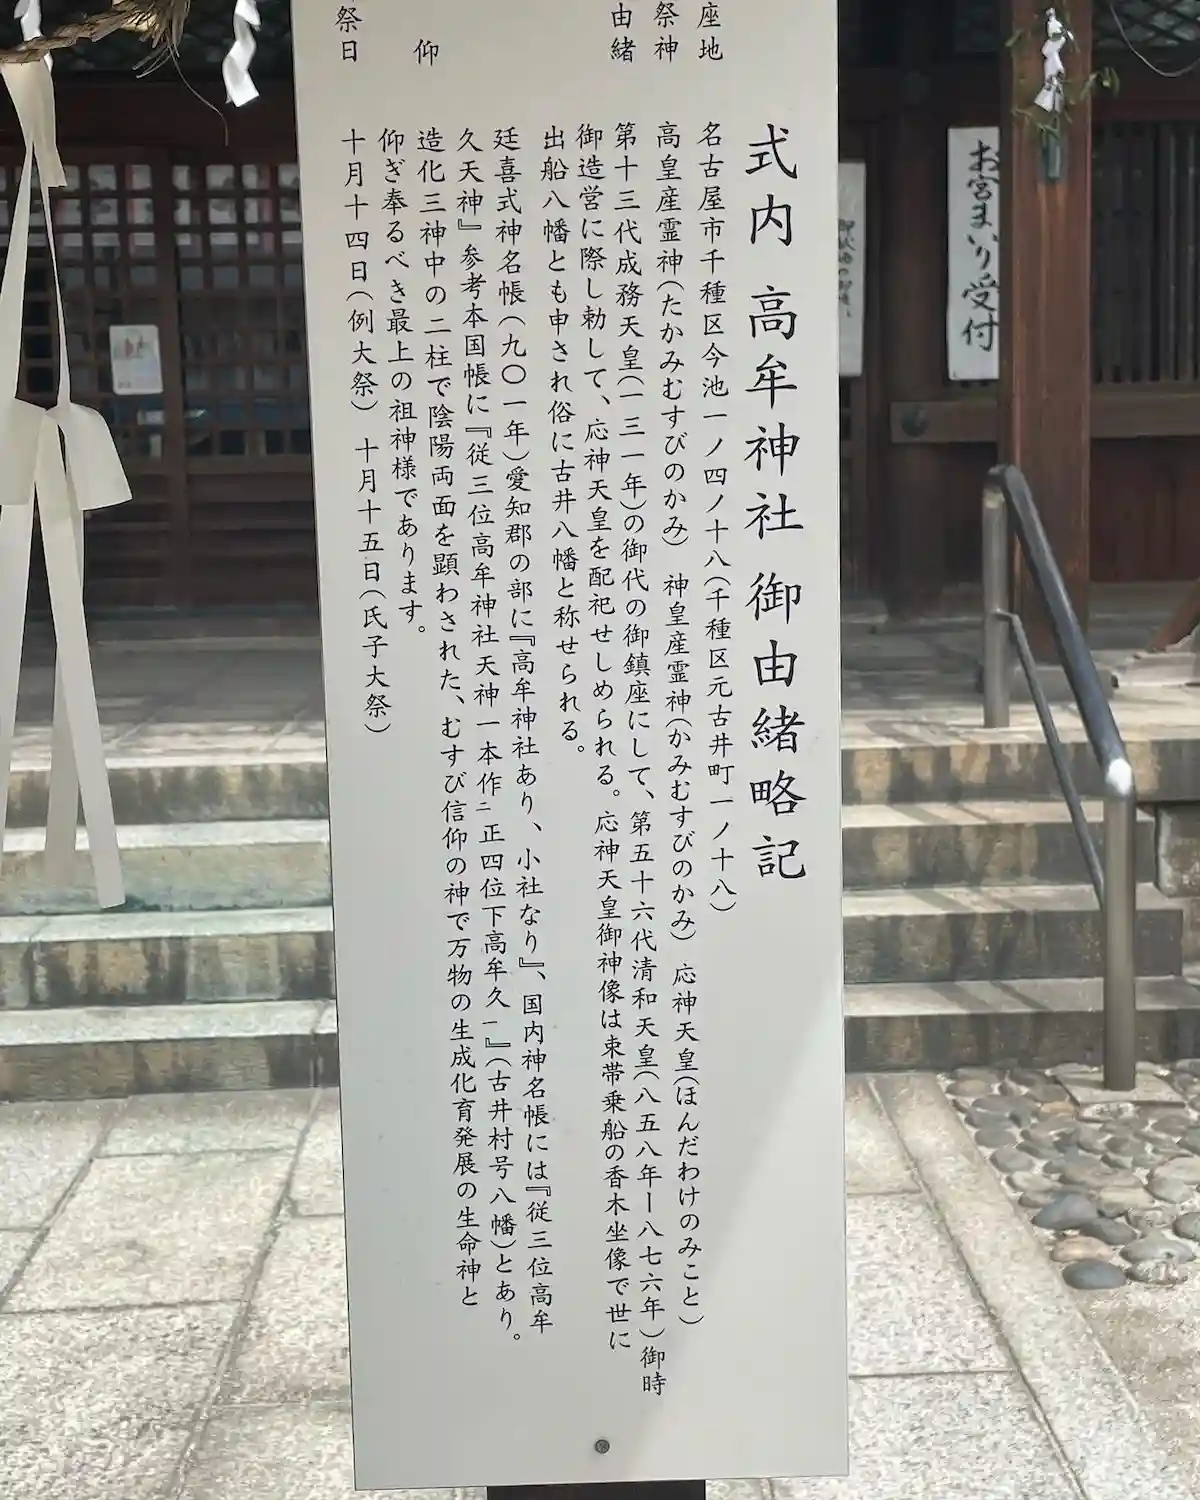 式内 高牟神社 御由緒略記
座地 名古屋市千種区今池一ノ四ノ十八(千種区元古井町一ノ十八)
祭神 高皇産霊神(たかみむすびのかみ) 神皇産霊神(かみむすびのかみ) 応神天皇(ほんだわけのみこと)
由緒 第十三代成務天皇(一三一年)の御代の御鎮座にして、第五十六代清和天皇(八五八年ー八七六年)御時
御造営に際し勅して、応神天皇を配祀せしめられる。応神天皇御神像は束帯乗船の香木坐像で世に
出船八幡とも申され俗に古井八幡と称せられる。
廷喜式神名帳(九〇一年)愛知郡の部に『高牟神社あり、小社なり』、国内神名帳には『従三位高牟
久天神』参考本国帳に『従三位高牟神社天神一本作ニ正四位下高牟久一』(古井村号八幡)とあり。
仰 造化三神中の二柱で陰陽両面を顕わされた、むすび信仰の神で万物の生成化育発展の生命神と
仰ぎ奉るべき最上の祖神様であります。
祭日 十月十四日(例大祭) 十月十五日(氏子大祭)
お宮まいり受付